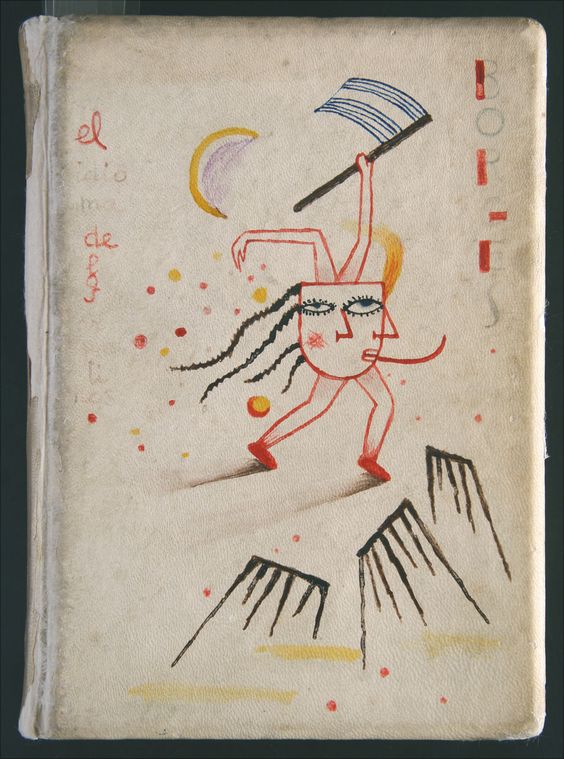 el
idio
ma
de
los
BORGES